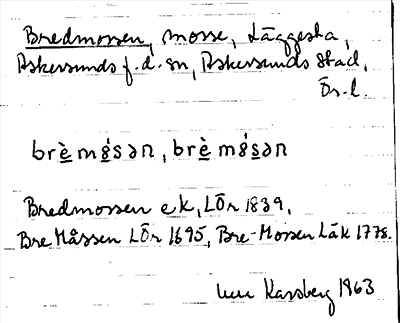 Bredmossen, mosse, Läggesta,
Askersunds f. d. sn, Askersunds stad,
Ör. l.
brè mg̀sən, brè mg̀sən
Bredmossen ek, LÖr 1839,
Bre Måssen LÖr 1695, Bre-Mossen Läk 1778.
Karsberg 1963